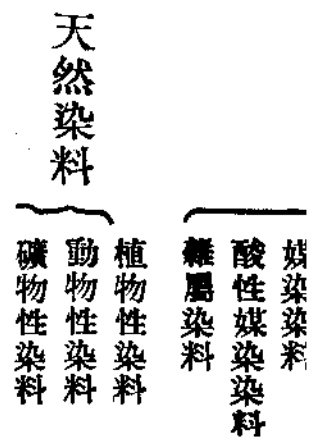 媒染染料
酸性媒染染料
雜屬染料
天然染料
植物性染料
動物性染料
礦物性染料